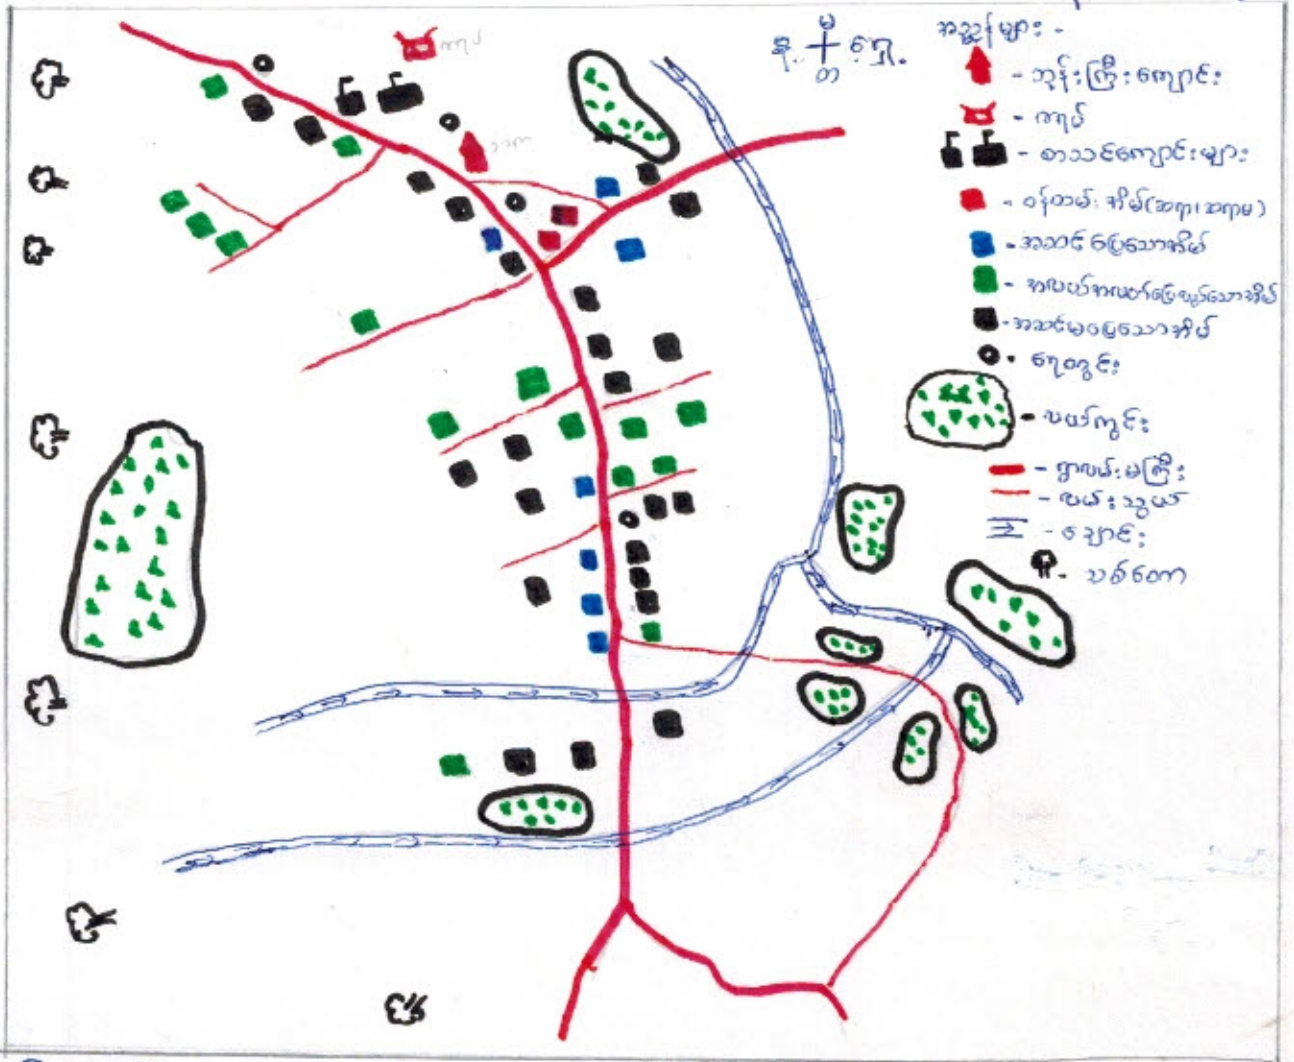 မ
န. ရှေ.
တ
အညွှန်းများ -
- ဘုန်းကြီးကျောင်း
- ကရပ်
- စာသင်ကျောင်းများ
- ဝန်ထမ်းအိမ်(ဆရာ၊ဆရာမ)
- အဆင်ပြေသောအိမ်
- အလယ်အလတ်ပြေလည်သောအိမ်
- အဆင်မပြေသောအိမ်
- ရေတွင်း
- လယ်ကွင်း
- ရွာလမ်းမကြီး
- လမ်းသွယ်
- ချောင်း
- သစ်တော